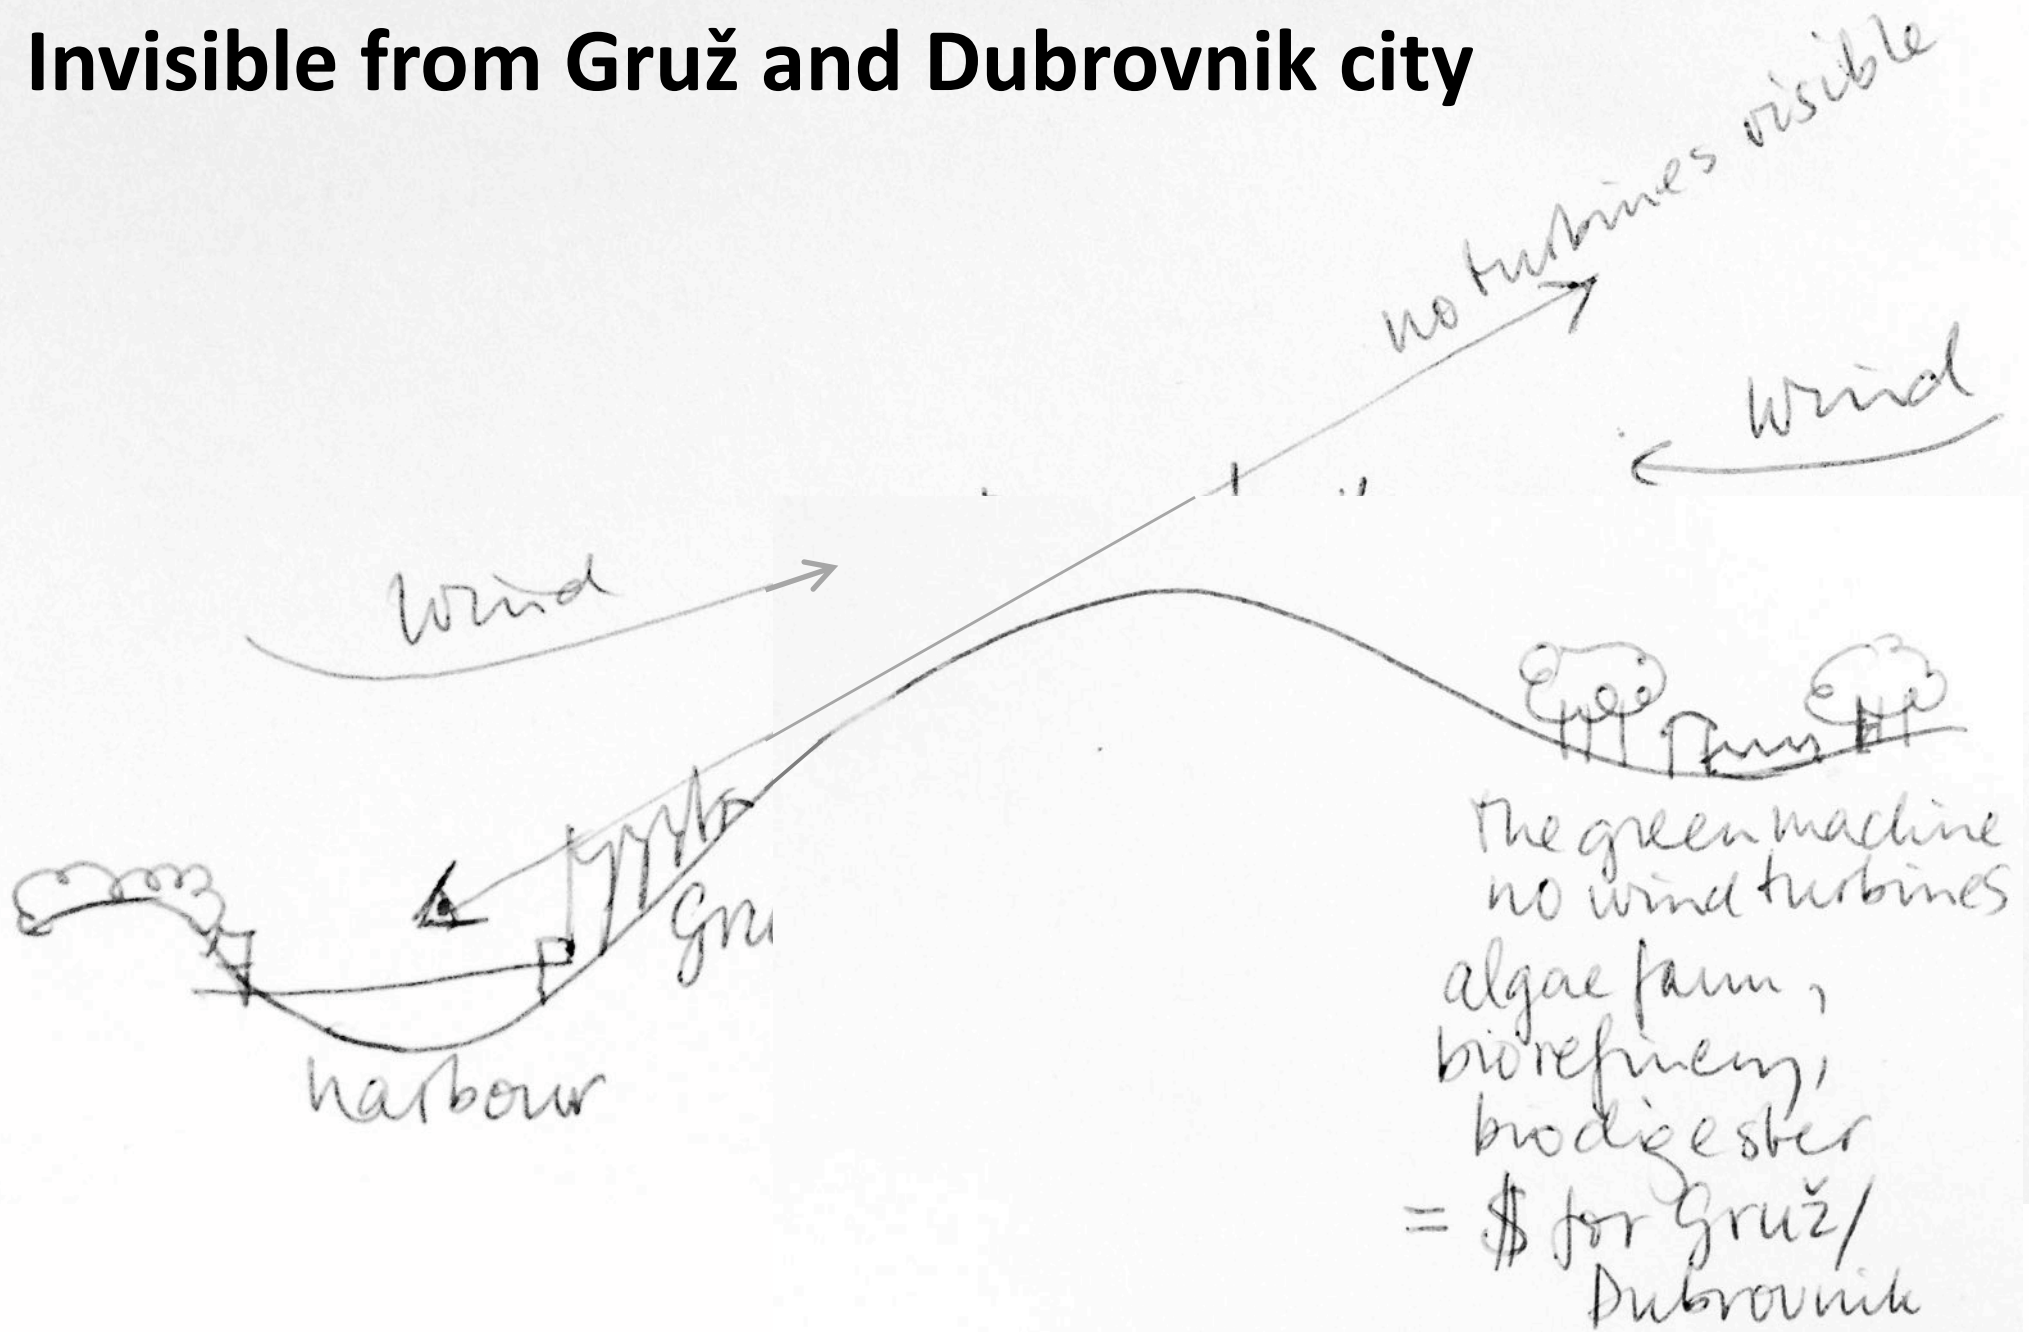 Invisible from Gruž and Dubrovnik city
no turbines visible
wind
wind
harbour
the green machine
no wind turbines
algae farm,
biorefinery,
biodigester
= $ for Gruž/
Dubrovnik